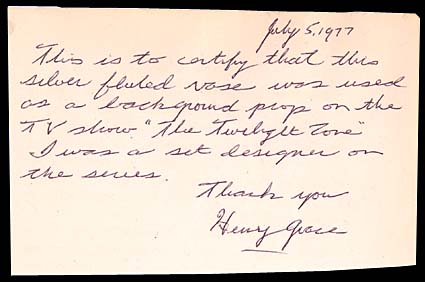 July 5, 1977
This is to certify that this
silver fluted vase was used
as a background prop on the
TV show "The Twilight Zone"
I was a set designer on
the series.
Thank you
Henry Grace